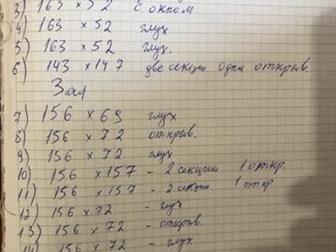 3) 163 × 52 с окном
4) 163 × 52 глух
5) 163 × 52 глух.
6) 143 × 147 две секции одна открыв.
Зал
7) 156 × 69 глух
8) 156 × 72 открыв.
9) 156 × 72 глух
10) 156 × 157 - 2 секции 1 откр.
11) 156 × 157 - 2 секции 1 откр
12) 156 × 72 - глух
13) 156 × 72 - открыв.
14) 156 × 72 - глух